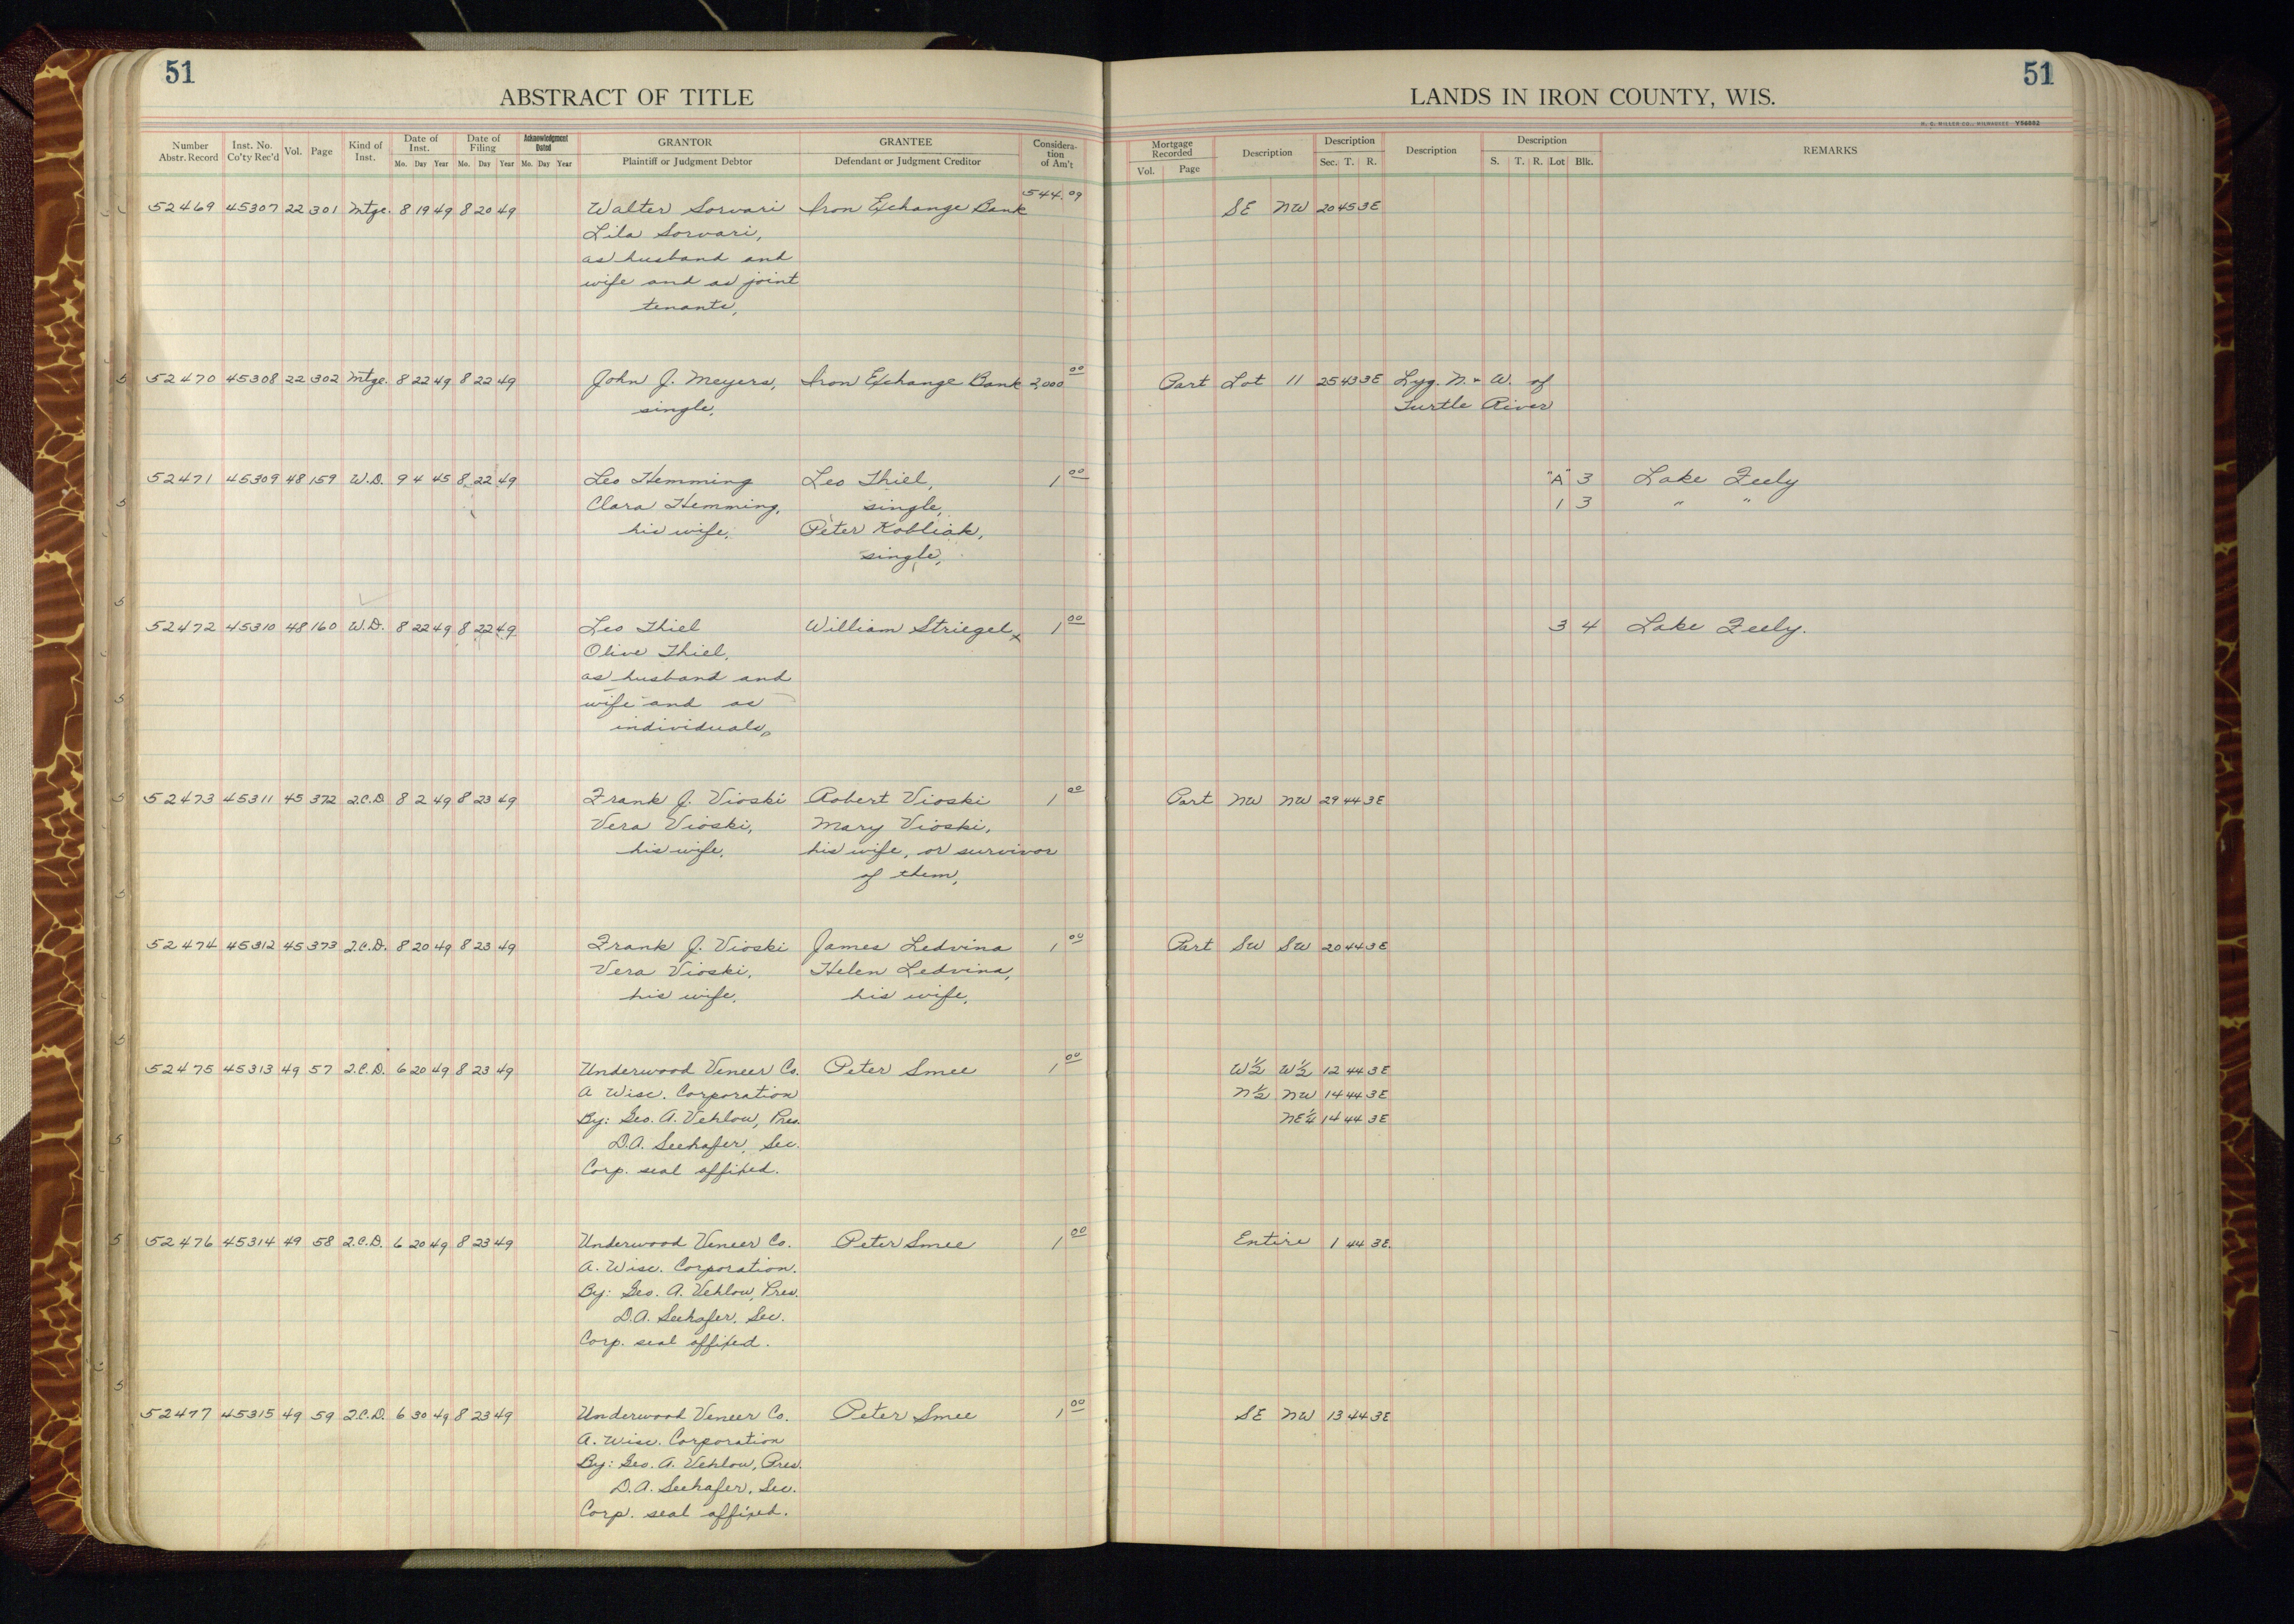 51
51
ABSTRACT OF TITLE
LANDS IN IRON COUNTY, WIS.
H. C. MILLER CO., MILWAUKEE Y56882
Number Abstr. Record Inst. No. Co'ty Rec'd Vol. Page Kind of Inst. Date of Inst. Mo. Day Year Date of Filing Mo. Day Year Acknowledgment Dated Mo. Day Year GRANTOR Plaintiff or Judgment Debtor GRANTEE Defendant or Judgment Creditor Considera-tion of Am't Mortgage Recorded Vol. Page Description Description Sec. T. R. Description Description S. T. R. Lot Blk. REMARKS
52469 45307 22 301 Mtge. 8 19 49 8 20 49 Walter Sorvari Iron Exchange Bank 544.09 SE NW 20 45 3E
Lila Sorvari,
as husband and
wife and as joint
tenants,
52470 45308 22 302 Mtge. 8 22 49 8 22 49 John J. Meyers, Iron Exchange Bank 2,000 00 Part Lot 11 25 43 3E Lyg. N. + W. of
single, Turtle River
52471 45309 48 159 W.D. 9 4 45 8 22 49 Leo Hemming Leo Thiel, 1 00 "A" 3 Lake Feely
Clara Hemming, single, 1 3 " "
his wife, Peter Kobliak,
single,
52472 45310 48 160 W.D. 8 22 49 8 22 49 Leo Thiel William Striegel x 1 00 3 4 Lake Feely.
Olive Thiel,
as husband and
wife and as
individuals,
52473 45311 45 372 2.C.D. 8 2 49 8 23 49 Frank J. Vioski Robert Vioski 1 00 Part NW NW 29 44 3E
Vera Vioski, Mary Vioski,
his wife, his wife, or survivor
of them,
52474 45312 45 373 2.C.D. 8 20 49 8 23 49 Frank J. Vioski James Ledvina 1 00 Part SW SW 20 44 3E
Vera Vioski, Helen Ledvina,
his wife, his wife,
52475 45313 49 57 2.C.D. 6 20 49 8 23 49 Underwood Veneer Co. Peter Smee 1 00 W½ W½ 12 44 3E
A Wisc. Corporation N½ NW 14 44 3E
By: Geo. A. Vehlow, Pres. NE¼ 14 44 3E
D.A. Seehafer, Sec.
Corp. seal affixed.
52476 45314 49 58 2.C.D. 6 20 49 8 23 49 Underwood Veneer Co. Peter Smee 1 00 Entire 1 44 3E.
A. Wisc. Corporation.
By: Geo. A. Vehlow, Pres.
D.A. Seehafer, Sec.
Corp. seal affixed.
52477 45315 49 59 2.C.D. 6 30 49 8 23 49 Underwood Veneer Co. Peter Smee 1 00 SE NW 13 44 3E
A. Wisc. Corporation
By: Geo. A. Vehlow, Pres.
D.A. Seehafer, Sec.
Corp. seal affixed.